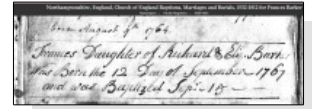 Northamptonshire, England, Church of England Baptisms, Marriages and Burials, 1532-1812 for Frances Barker
born August 9th 1764
Frances Daughter of Richard & Eliz. Barker
was Born the 12 Day of September 1767
and was Baptized Sepr. 18